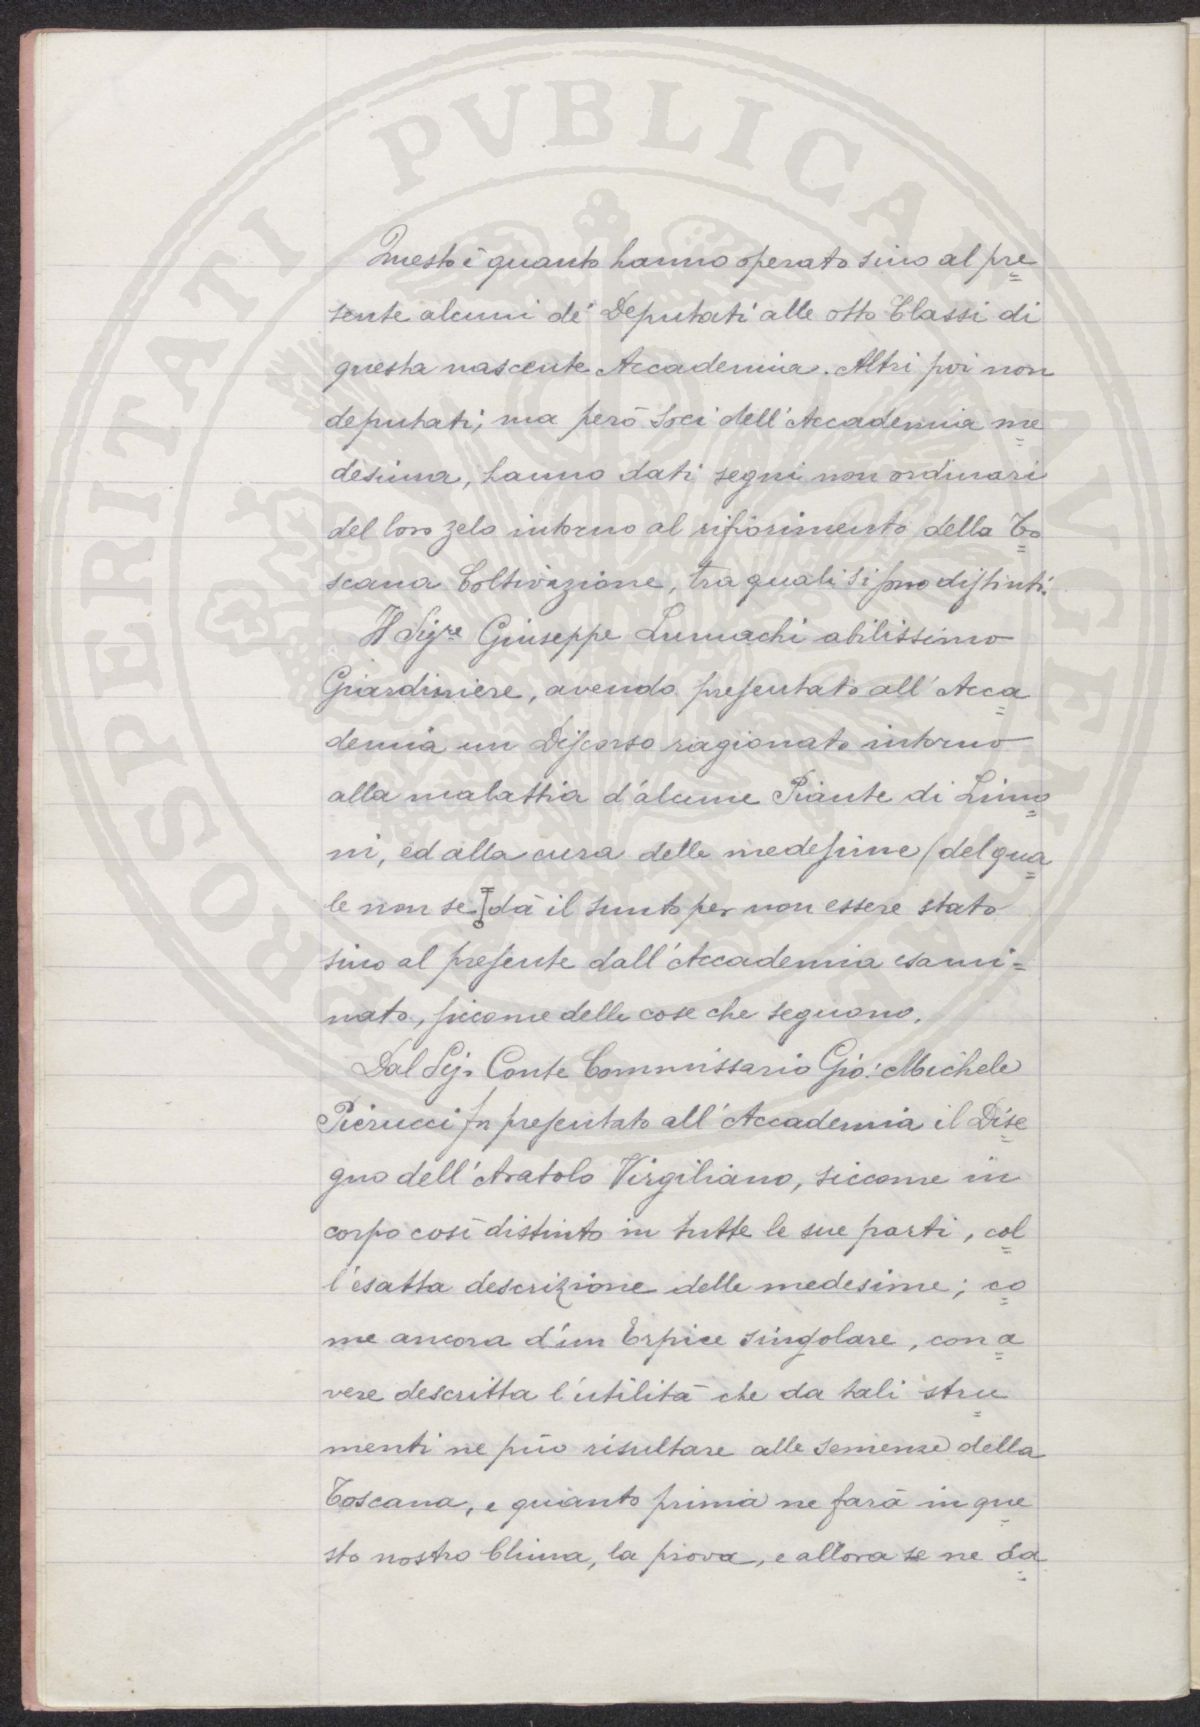 PROSPERITATI PVBLICAE AVGENDAE
Questo è quanto hanno operato sino al pre=
sente alcuni de' Deputati alle otto Classi di
questa nascente Accademia. Altri poi non
deputati, ma però Soci dell'Accademia me=
desima, hanno dati segni non ordinari
del loro zelo intorno al rifiorimento della To=
scana Coltivazione, tra quali si sono distinti.
Il Sigre Giuseppe Lumachi abilissimo
Giardiniere, avendo presentato all'Acca=
demia un Discorso ragionato intorno
alla malattia d'alcune Piante di Limo=
ni, ed alla cura delle medesime (del qua=
le non se dà il sunto per non essere stato
sino al presente dall'Accademia esami=
nato, siccome delle cose che seguono.
Dal Sig. Conte Commissario Gio: Michele
Pierucci fu presentato all'Accademia il Dise=
gno dell'Aratolo Virgiliano, siccome in
corpo così distinto in tutte le sue parti, col=
l'esatta descrizione delle medesime; co=
me ancora d'un Erpice singolare, con a=
vere descritta l'utilità che da tali stru=
menti ne può risultare alle semense della
Toscana, e quanto prima ne farà in que=
sto nostro Clima, la prova, e allora se ne da=